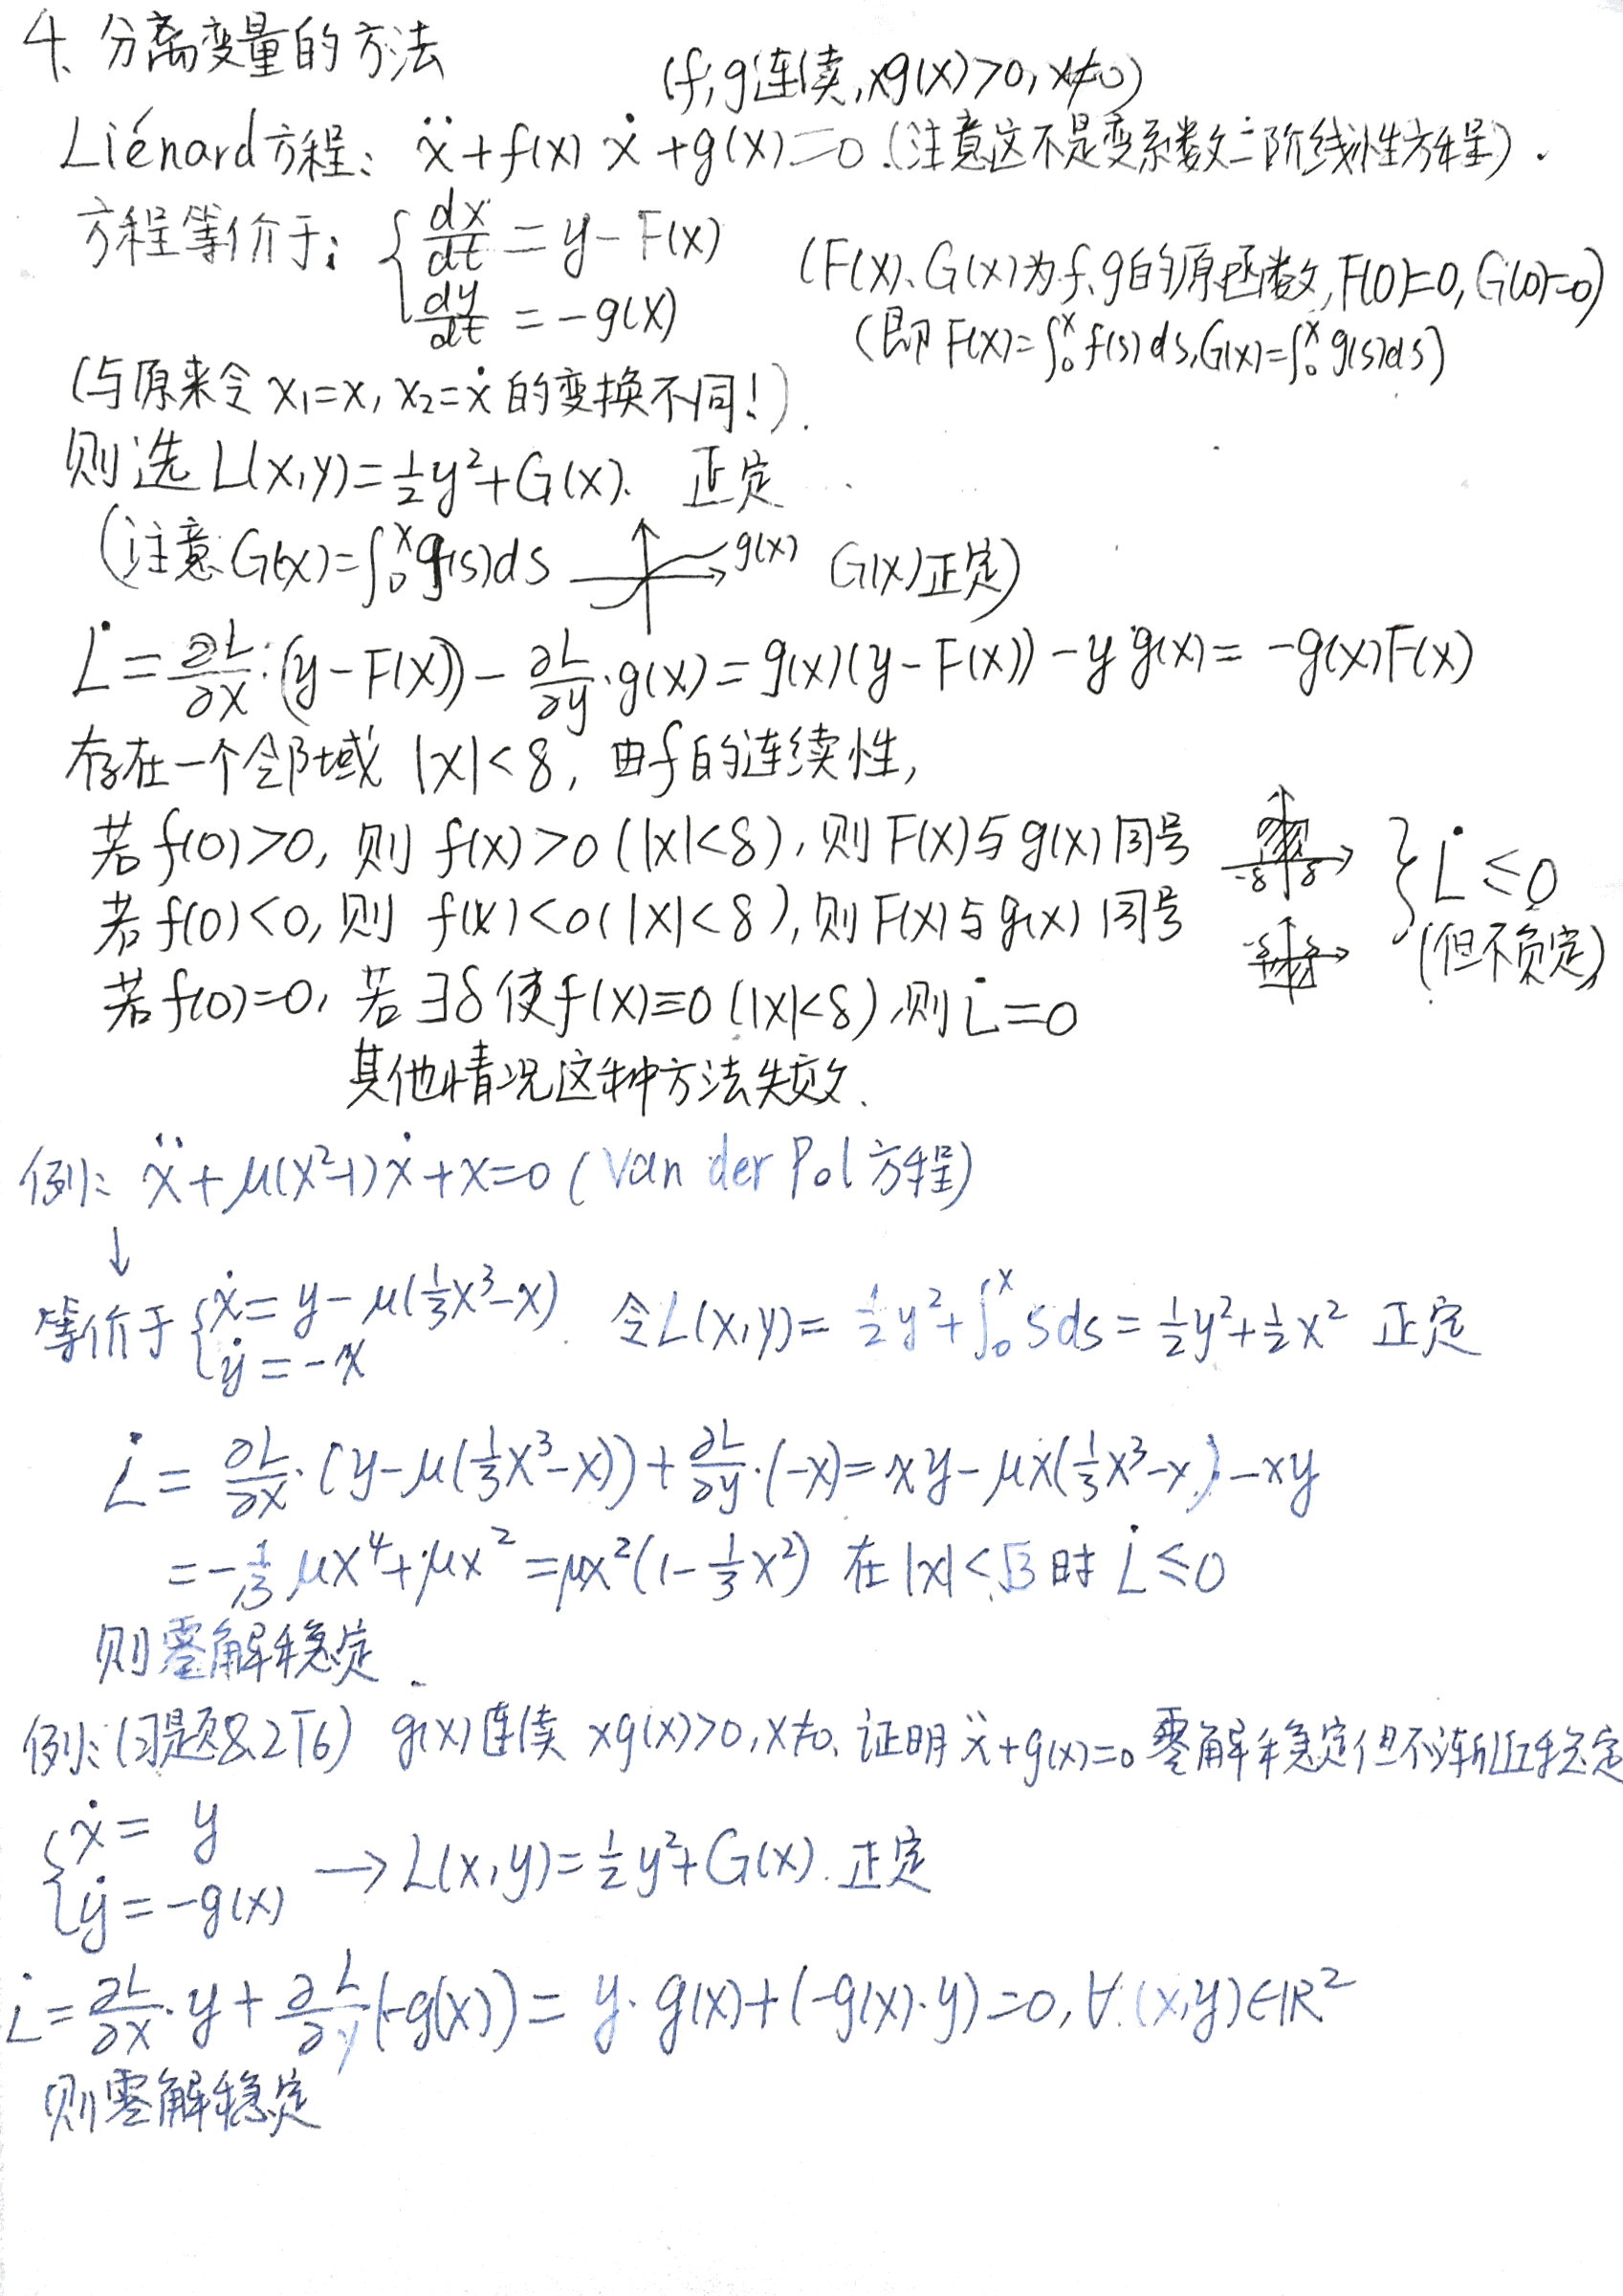 4、分离变量的方法
(f,g连续,xg(x)>0,x≠0)
Liénard方程: ẍ+f(x)ẋ+g(x)=0.(注意这不是变系数二阶线性方程).
方程等价于: { dx/dt = y-F(x)
dy/dt = -g(x)
(F(x)、G(x)为f、g的原函数,F(0)=0,G(0)=0)
(即 F(x)=∫₀ˣ f(s)ds,G(x)=∫₀ˣ g(s)ds)
(与原来令 x₁=x, x₂=ẋ 的变换不同!).
则选 L(x,y)=½y²+G(x). 正定
(注意G(x)=∫₀ˣ g(s)ds g(x) G(x)正定)
L̇=∂L/∂x·(y-F(x))-∂L/∂y·g(x)=g(x)(y-F(x))-y·g(x)=-g(x)F(x)
存在一个邻域 |x|<δ, 由f的连续性,
若f(0)>0, 则 f(x)>0 (|x|<δ), 则F(x)与g(x)同号 -δ δ
若f(0)<0, 则 f(x)<0(|x|<δ),则F(x)与g(x)同号
} L̇≤0
(但不负定)
若f(0)=0, 若∃δ使f(x)≡0 (|x|<δ),则L̇=0
其他情况这种方法失效.
例: ẍ+μ(x²-1)ẋ+x=0 (Van der Pol方程)
↓
等价于{ẋ=y-μ(⅓x³-x)
ẏ=-x
. 令L(x,y)=½y²+∫₀ˣ sds=½y²+½x² 正定
L̇=∂L/∂x·(y-μ(⅓x³-x))+∂L/∂y·(-x)=xy-μx(⅓x³-x)-xy
=-⅓μx⁴+μx²=μx²(1-⅓x²) 在|x|<√3时 L̇≤0
则零解稳定.
例:(习题8.2T6) g(x)连续 xg(x)>0,x≠0、证明ẍ+g(x)=0零解稳定但不渐近稳定
{ẋ= y
ẏ=-g(x)
→ L(x,y)=½y²+G(x). 正定
L̇=∂L/∂x·y+∂L/∂y(-g(x))=y·g(x)+(-g(x)·y)=0,∀(x,y)∈ℝ²
则零解稳定